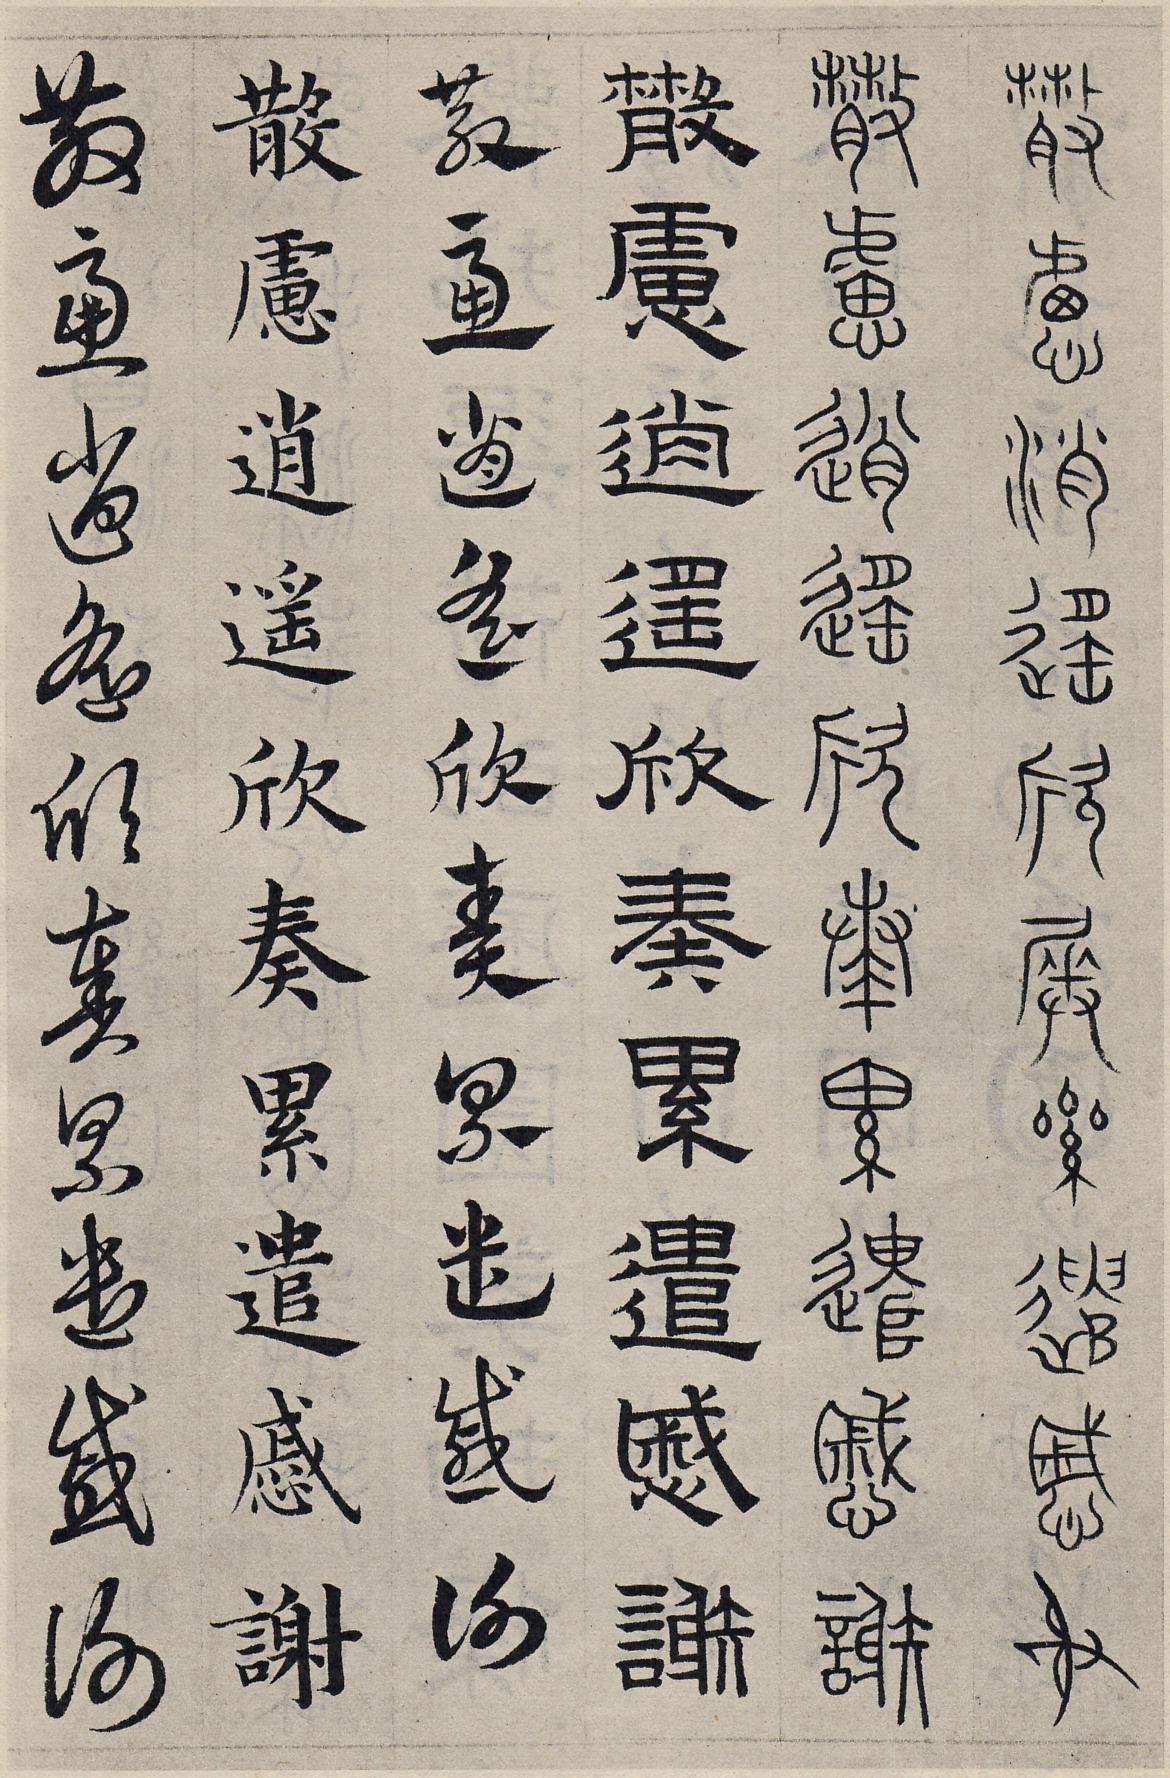 散慮逍遙欣奏累遣慼謝
散慮逍遙欣奏累遣慼謝
散慮逍遙欣奏累遣慼謝
散慮逍遙欣奏累遣慼謝
散慮逍遥欣奏累遣慼謝
散慮逍遙欣奏累遣慼謝